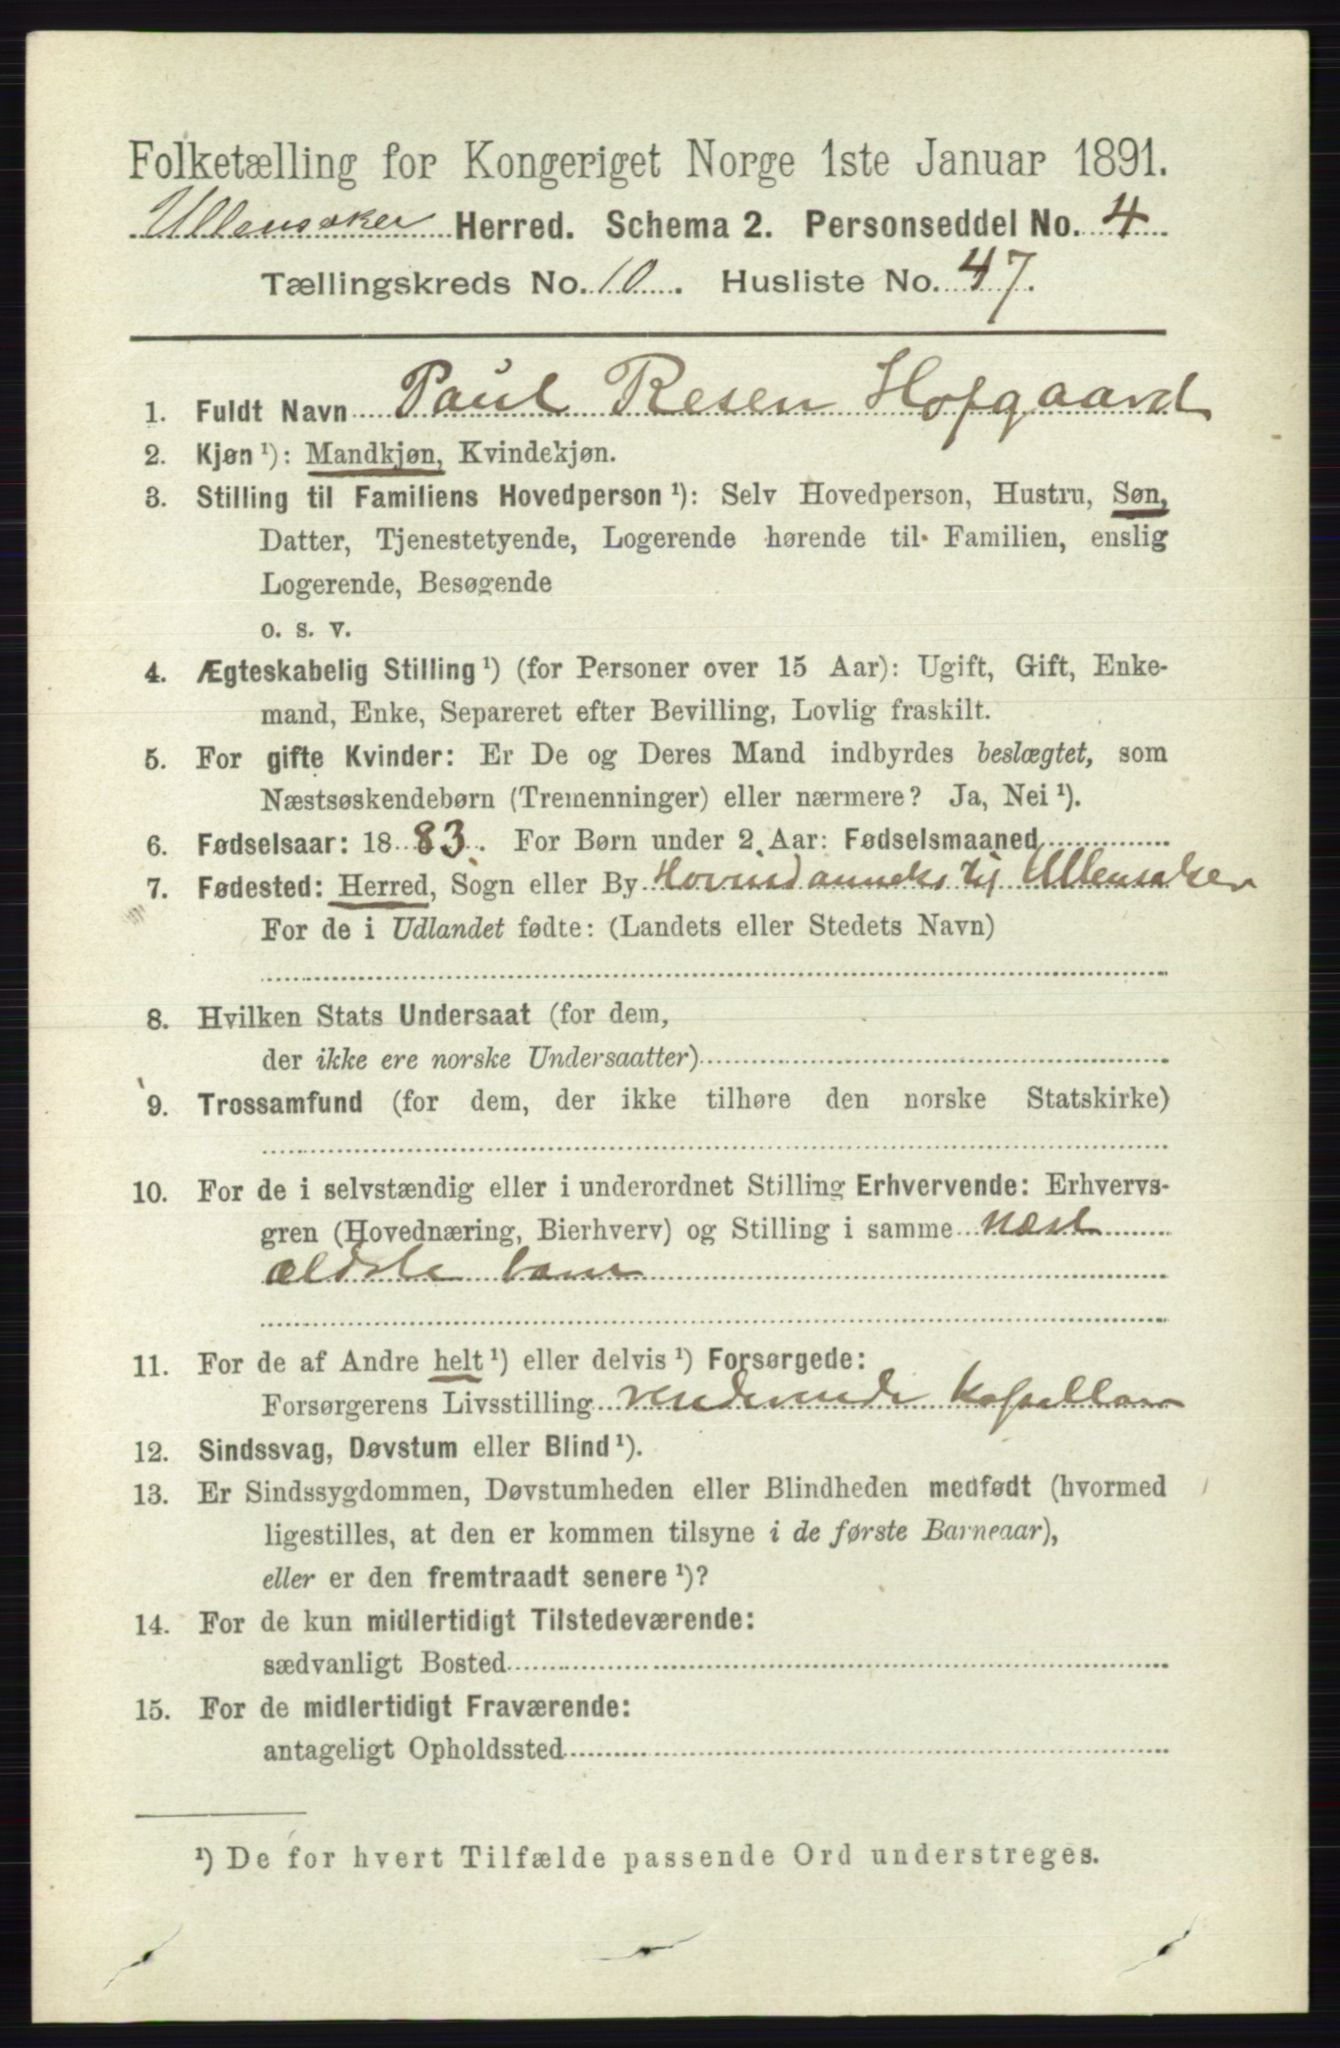 Folketælling for Kongeriget Norge 1ste Januar 1891.
Ullensaker Herred. Schema 2. Personseddel No. 4
Tællingskreds No. 10. Husliste No. 47.
1. Fuldt Navn Paul Resen Hofgaard
2. Kjøn ¹): Mandkjøn, Kvindekjøn.
3. Stilling til Familiens Hovedperson ¹): Selv Hovedperson, Hustru, Søn,
Datter, Tjenestetyende, Logerende hørende til Familien, enslig
Logerende, Besøgende
o. s. v.
4. Ægteskabelig Stilling ¹) (for Personer over 15 Aar): Ugift, Gift, Enke-
mand, Enke, Separeret efter Bevilling, Lovlig fraskilt.
5. For gifte Kvinder: Er De og Deres Mand indbyrdes beslægtet, som
Næstsøskendebørn (Tremenninger) eller nærmere? Ja, Nei ¹).
6. Fødselsaar: 1883. For Børn under 2 Aar: Fødselsmaaned
7. Fødested: Herred, Sogn eller By Hovind anneks til Ullensaker
For de i Udlandet fødte: (Landets eller Stedets Navn)
8. Hvilken Stats Undersaat (for dem,
der ikke ere norske Undersaatter)
9. Trossamfund (for dem, der ikke tilhøre den norske Statskirke)
10. For de i selvstændig eller i underordnet Stilling Erhvervende: Erhvervs-
gren (Hovednæring, Bierhverv) og Stilling i samme næst
ældste barn
11. For de af Andre helt ¹) eller delvis ¹) Forsørgede:
Forsørgerens Livsstilling residerende kapellan
12. Sindssvag, Døvstum eller Blind ¹).
13. Er Sindssygdommen, Døvstumheden eller Blindheden medfødt (hvormed
ligestilles, at den er kommen tilsyne i de første Barneaar),
eller er den fremtraadt senere ¹)?
14. For de kun midlertidigt Tilstedeværende:
sædvanligt Bosted
15. For de midlertidigt Fraværende:
antageligt Opholdssted
¹) De for hvert Tilfælde passende Ord understreges.